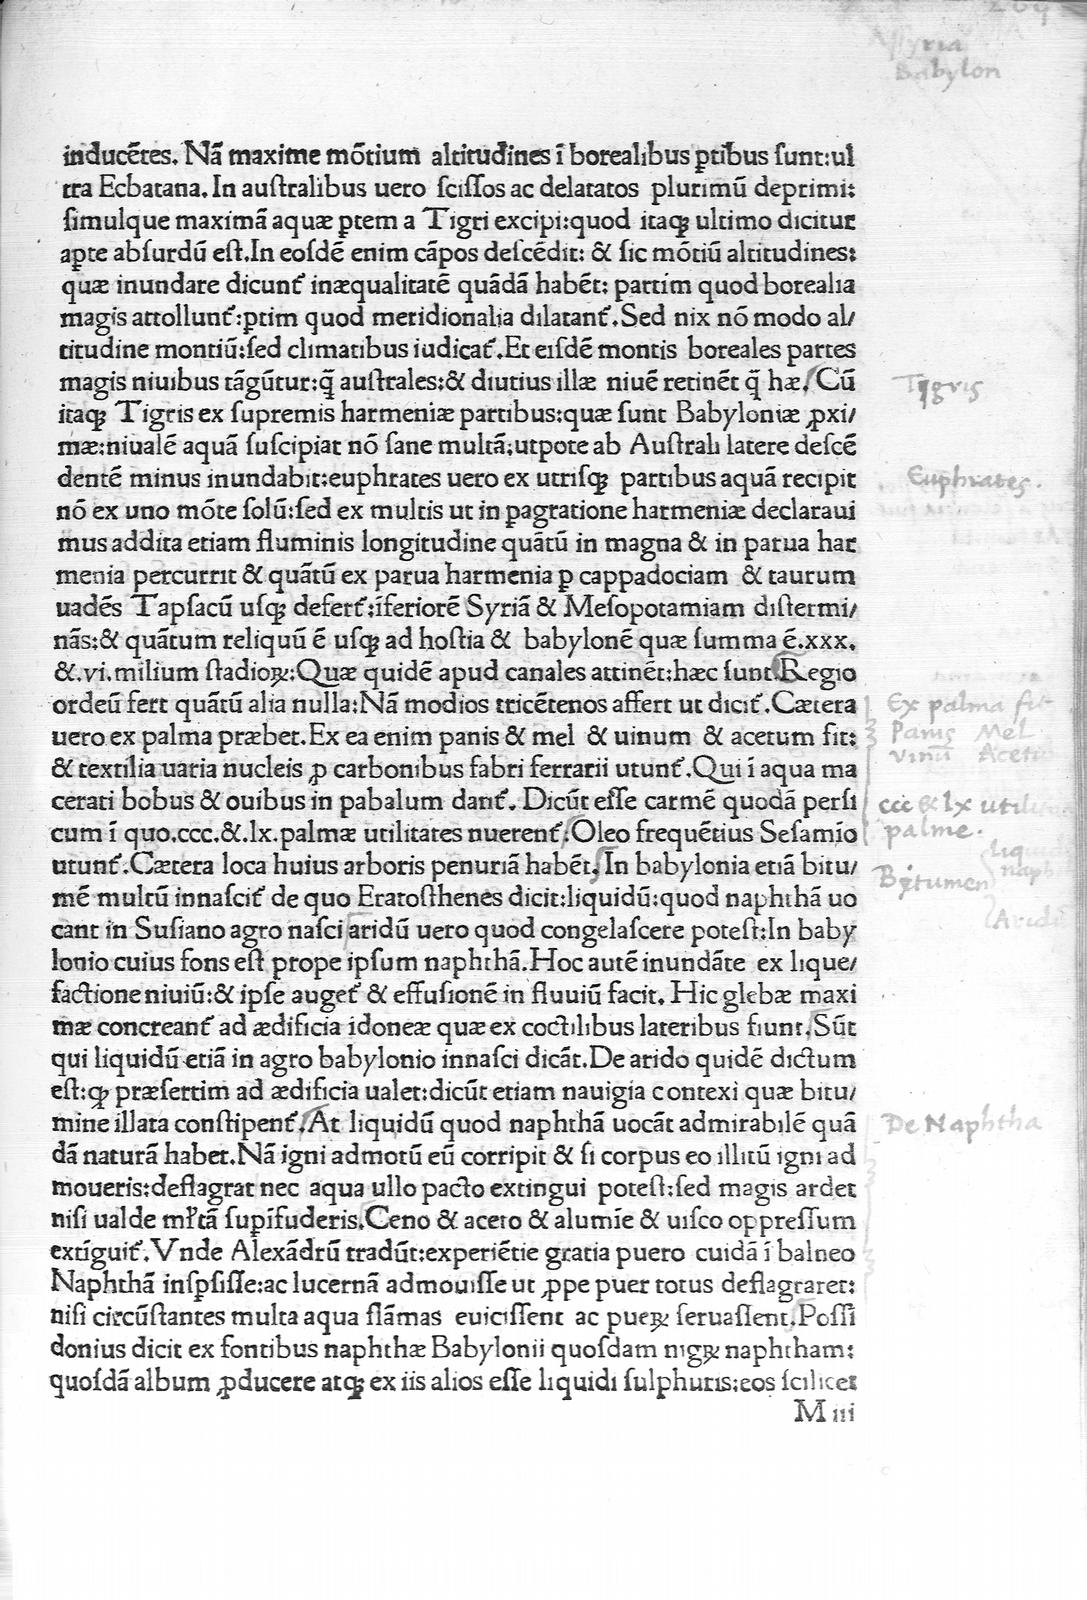 Assyria
Babylon
inducētes. Nā maxime mōtium altitudines ī borealibus ꝑtibus ſunt:ul
tra Ecbatana. In auſtralibus uero ſciſſos ac delatatos plurimū deprimi:
ſimulque maximā aquæ ꝑtem a Tigri excipi:quod itaqꝫ ultimo dicitur
aꝑte abſurdū eſt. In eoſdē enim cāpos deſcēdit: & ſic mōtiū altitudines:
quæ inundare dicunt᷑ inæqualitatē quādā habēt: partim quod borealia
magis attollunt᷑:ꝑtim quod meridionalia dilatant᷑. Sed nix nō modo al/
titudine montiū:ſed climatibus iudicat᷑. Et eiſdē montis boreales partes
magis niuibus tāgūtur:q̄ auſtrales:& diutius illæ niuē retinēt q̄ hæ. Cū
itaqꝫ Tigris ex ſupremis harmeniæ partibus:quæ ſunt Babyloniæ ꝓxi/
mæ:niualē aquā ſuſcipiat nō ſane multā;utpote ab Auſtrali latere deſcē
dentē minus inundabit:euphrates uero ex utriſqꝫ partibus aquā recipit
nō ex uno mōte ſolū:ſed ex multis ut in ꝑagratione harmeniæ declaraui
mus addita etiam fluminis longitudine quātū in magna & in parua har
menia percurrit & quātū ex parua harmenia ꝑ cappadociam & taurum
uadēs Tapſacū uſqꝫ defert᷑:īferiorē Syriā & Meſopotamiam diſtermi/
nās:& quātum reliquū ē uſqꝫ ad hoſtia & babylonē quæ ſumma ē.xxx.
&.vi.milium ſtadioꝝ:Quæ quidē apud canales attinēt:hæc ſunt Regio
ordeū fert quātū alia nulla:Nā modios tricētenos affert ut dicit᷑. Cætera
uero ex palma præbet. Ex ea enim panis & mel & uinum & acetum fit:
& textilia uaria nucleis ꝓ carbonibus fabri ferrarii utunt᷑. Qui ī aqua ma
cerati bobus & ouibus in pabalum dant᷑. Dicūt eſſe carmē quodā perſi
cum ī quo.ccc.&.lx.palmæ utilitates nuerent᷑. Oleo frequētius Seſamīo
utunt᷑. Cætera loca huius arboris penuriā habēt. In babylonia etiā bitu/
mē multū innaſcit᷑ de quo Eratoſthenes dicit:liquidū:quod naphthā uo
cant in Suſiano agro naſci aridū uero quod congelaſcere poteſt:In baby
lonio cuius fons eſt prope ipſum naphthā. Hoc autē inundāte ex lique/
factione niuiū:& ipſe auget᷑ & effuſionē in fluuiū facit. Hic glebæ maxi
mæ concreant᷑ ad ædificia idoneæ quæ ex coctilibus lateribus fiunt. Sūt
qui liquidū etiā in agro babylonio innaſci dicāt. De arido quidē dictum
eſt:qꝫ præſertim ad ædificia ualet:dicūt etiam nauigia contexi quæ bitu/
mine illata conſtipent᷑. At liquidū quod naphthā uocāt admirabilē quā
dā naturā habet. Nā igni admotū eū corripit & ſi corpus eo illitū igni ad
moueris:deflagrat nec aqua ullo pacto extingui poteſt:ſed magis ardet
niſi ualde mĺtā ſupīfuderis. Ceno & aceto & alumīe & uiſco oppreſſum
extīguit᷑. Vnde Alexādrū tradūt:experiētie gratia puero cuidā ī balneo
Naphthā inſpſiſſe:ac lucernā admouiſſe ut ꝓpe puer totus deflagraret:
niſi circūſtantes multa aqua flāmas euiciſſent ac pueꝝ ſeruaſſent. Poſſi
donius dicit ex fontibus naphthæ Babylonii quoſdam nigꝝ naphtham:
quoſdā album ꝓducere atqꝫ ex iis alios eſſe liquidi ſulphuris:eos ſcilicet
M iii
Tigris
Euphrates.
Ex palma fit
Panis Mel
vinū Acetū
ccc & lx utili
palme.
Bitumen
liquid
naph
Arid
De Naphtha